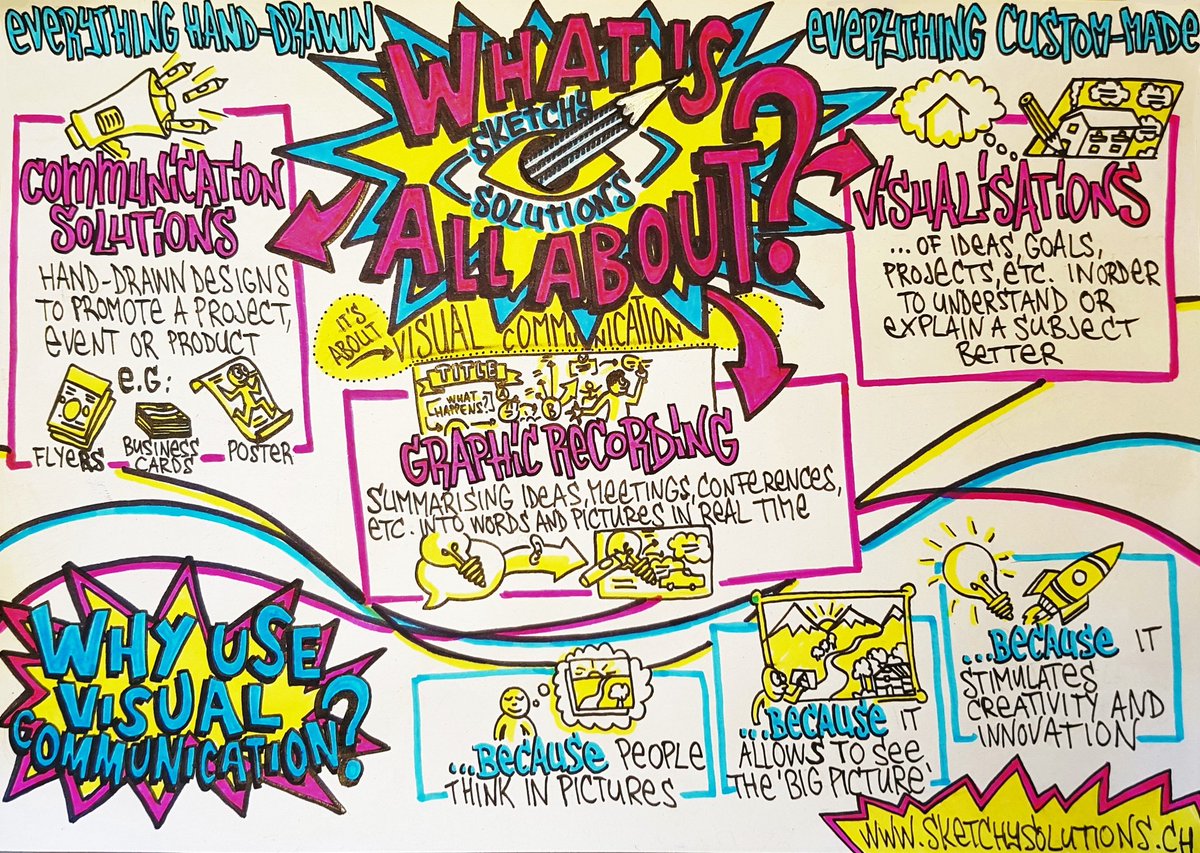 EVERYTHING HAND-DRAWN
EVERYTHING CUSTOM-MADE
WHAT IS
SKETCHY
SOLUTIONS
ALL ABOUT?
COMMUNICATION
SOLUTIONS
HAND-DRAWN DESIGNS
TO PROMOTE A PROJECT,
EVENT OR PRODUCT
e.G:
FLYERS
BUSINESS
CARDS
POSTER
VISUALISATIONS
... OF IDEAS, GOALS,
PROJECTS, ETC. IN ORDER
TO UNDERSTAND OR
EXPLAIN A SUBJECT
BETTER
IT'S
ABOUT
VISUAL COMMUNICATION
TITLE
WHAT
HAPPENS?
GRAPHIC RECORDING
SUMMARISING IDEAS, MEETINGS, CONFERENCES,
ETC. INTO WORDS AND PICTURES IN REAL TIME
WHY USE
VISUAL
COMMUNICATION?
...BECAUSE PEOPLE
THINK IN PICTURES
...BECAUSE IT
ALLOWS TO SEE
THE 'BIG PICTURE'
...BECAUSE IT
STIMULATES
CREATIVITY AND
INNOVATION
WWW.SKETCHYSOLUTIONS.CH